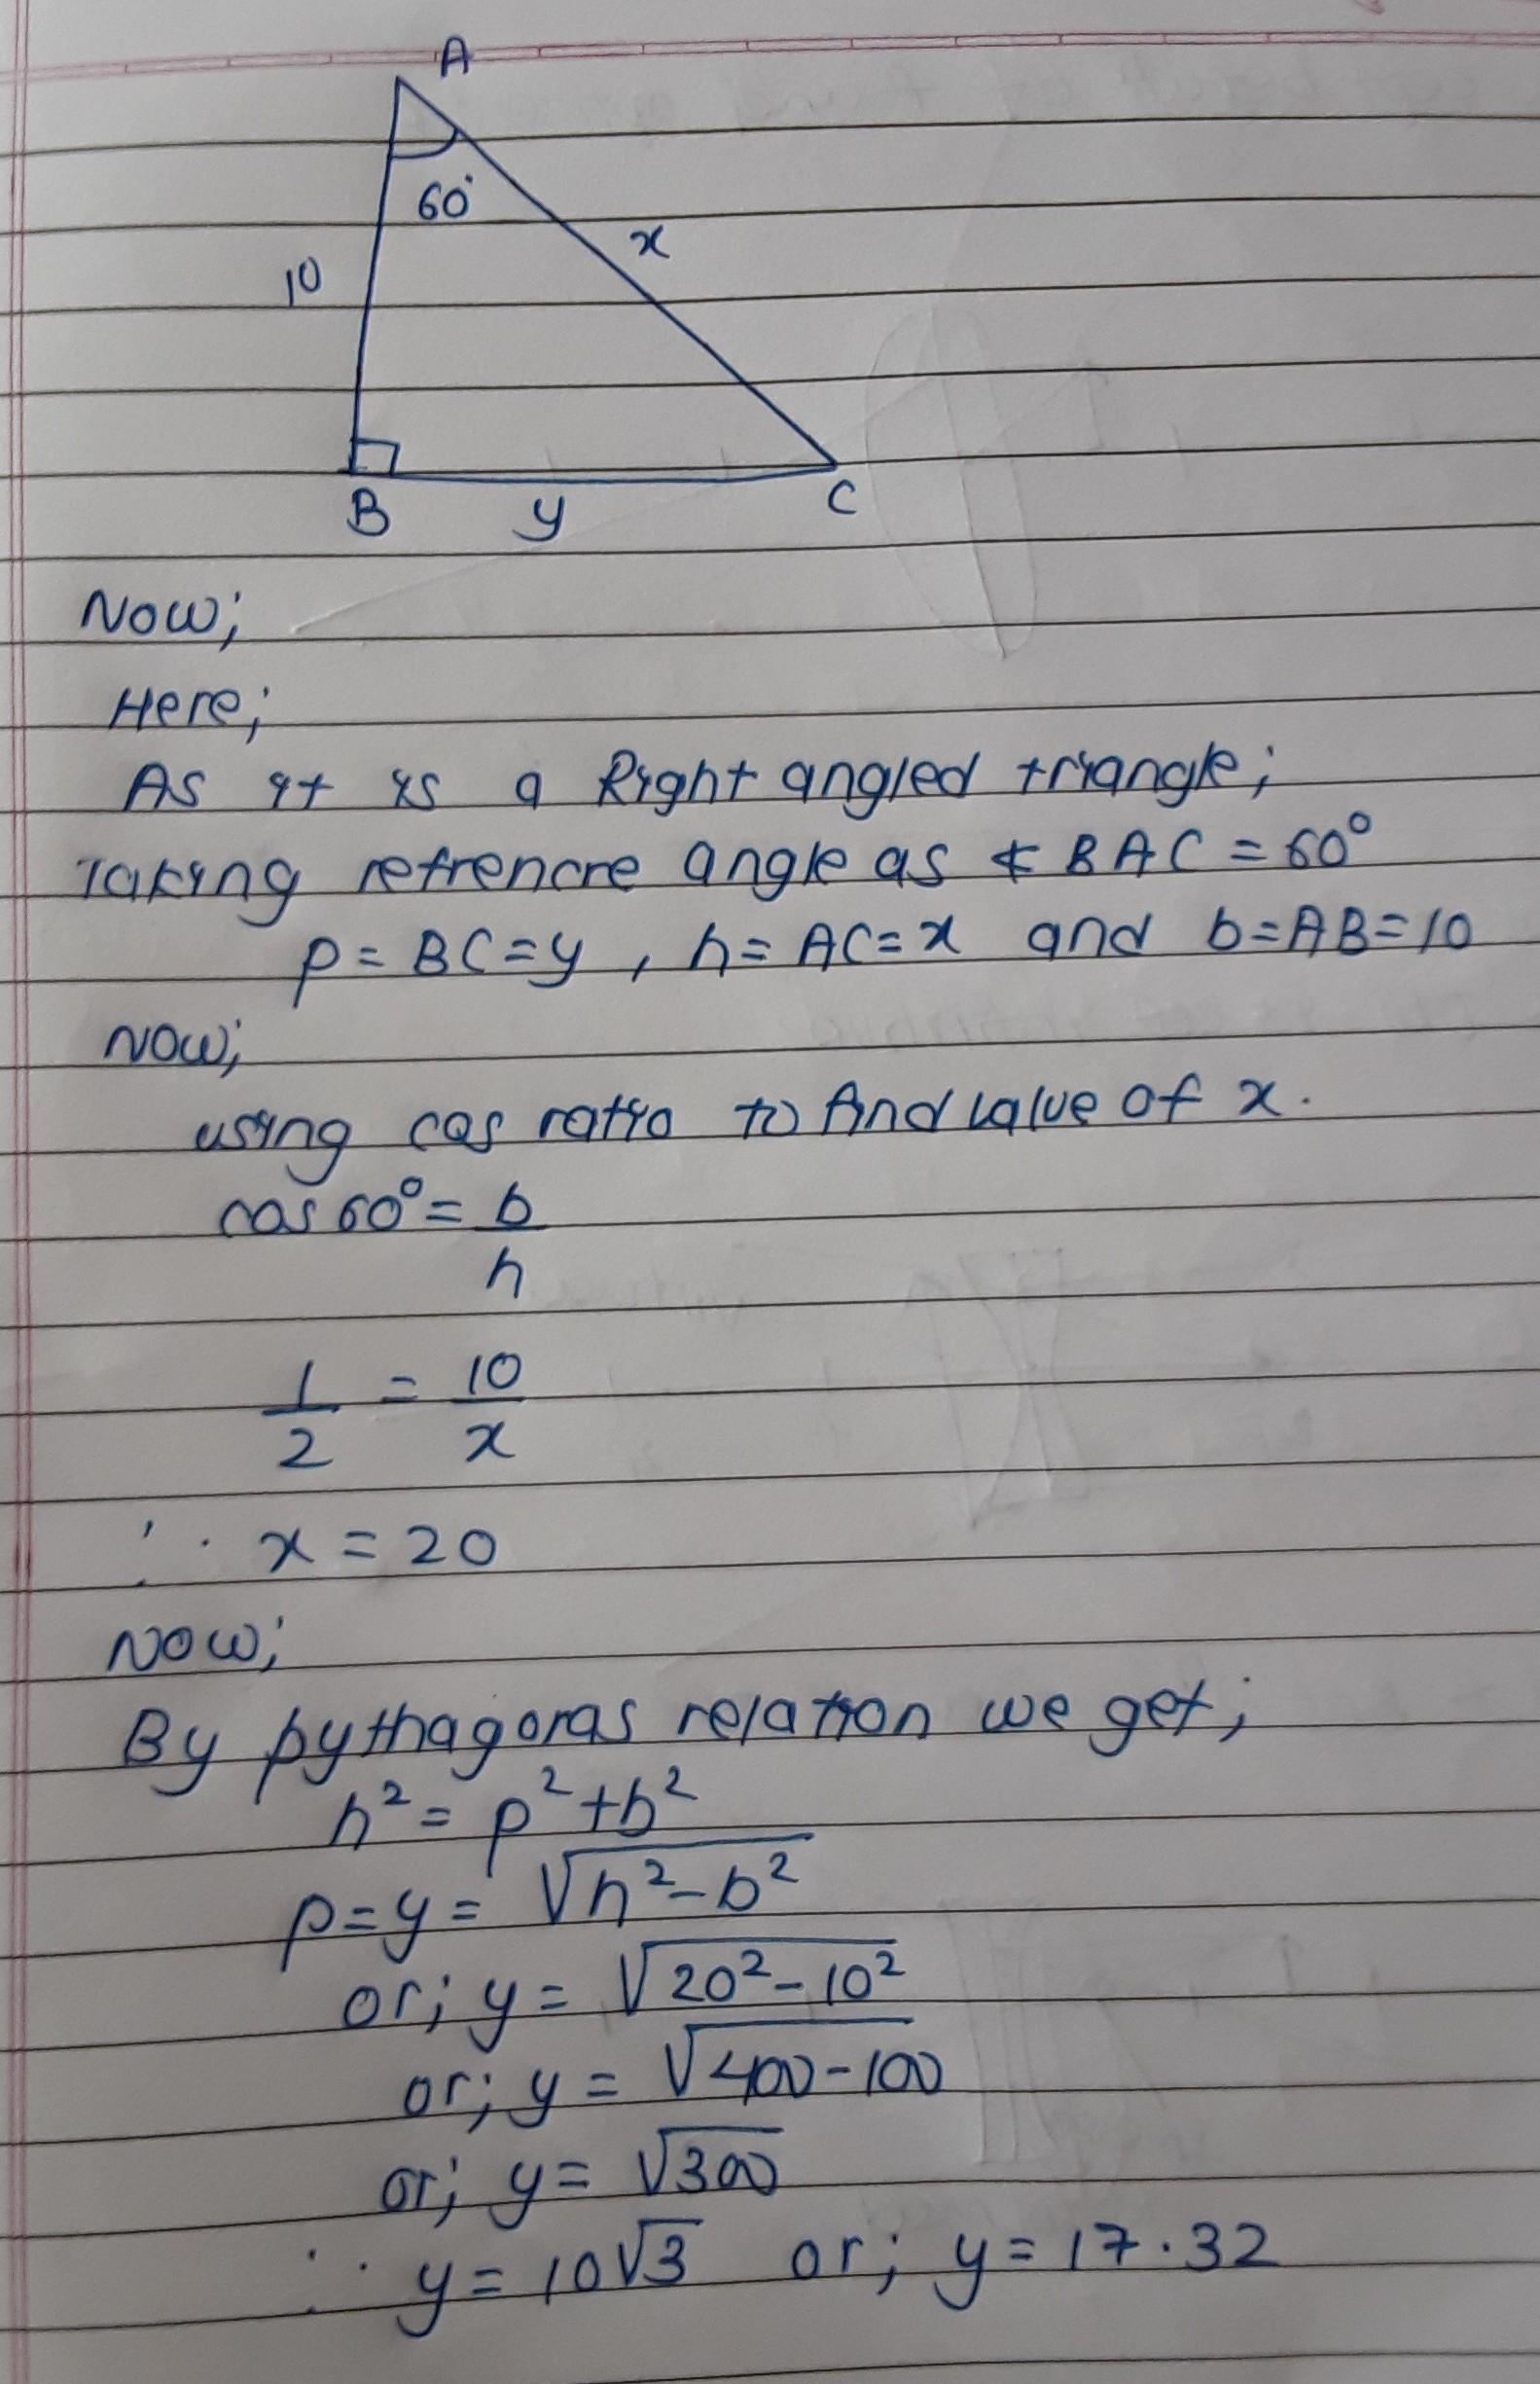 A
60°
x
10
B
y
C
Now;
Here;
As it is a Right angled triangle;
Taking refrencre angle as ∢ BAC = 60°
p = BC = y , h = AC = x and b = AB = 10
Now;
using cos ratio to find value of x.
cos 60° = b/h
1/2 = 10/x
∴ x = 20
Now;
By pythagoras relation we get;
h² = p² + b²
p = y = √(h² - b²)
or; y = √(20² - 10²)
or; y = √(400 - 100)
or; y = √300
∴ y = 10√3 or; y = 17.32